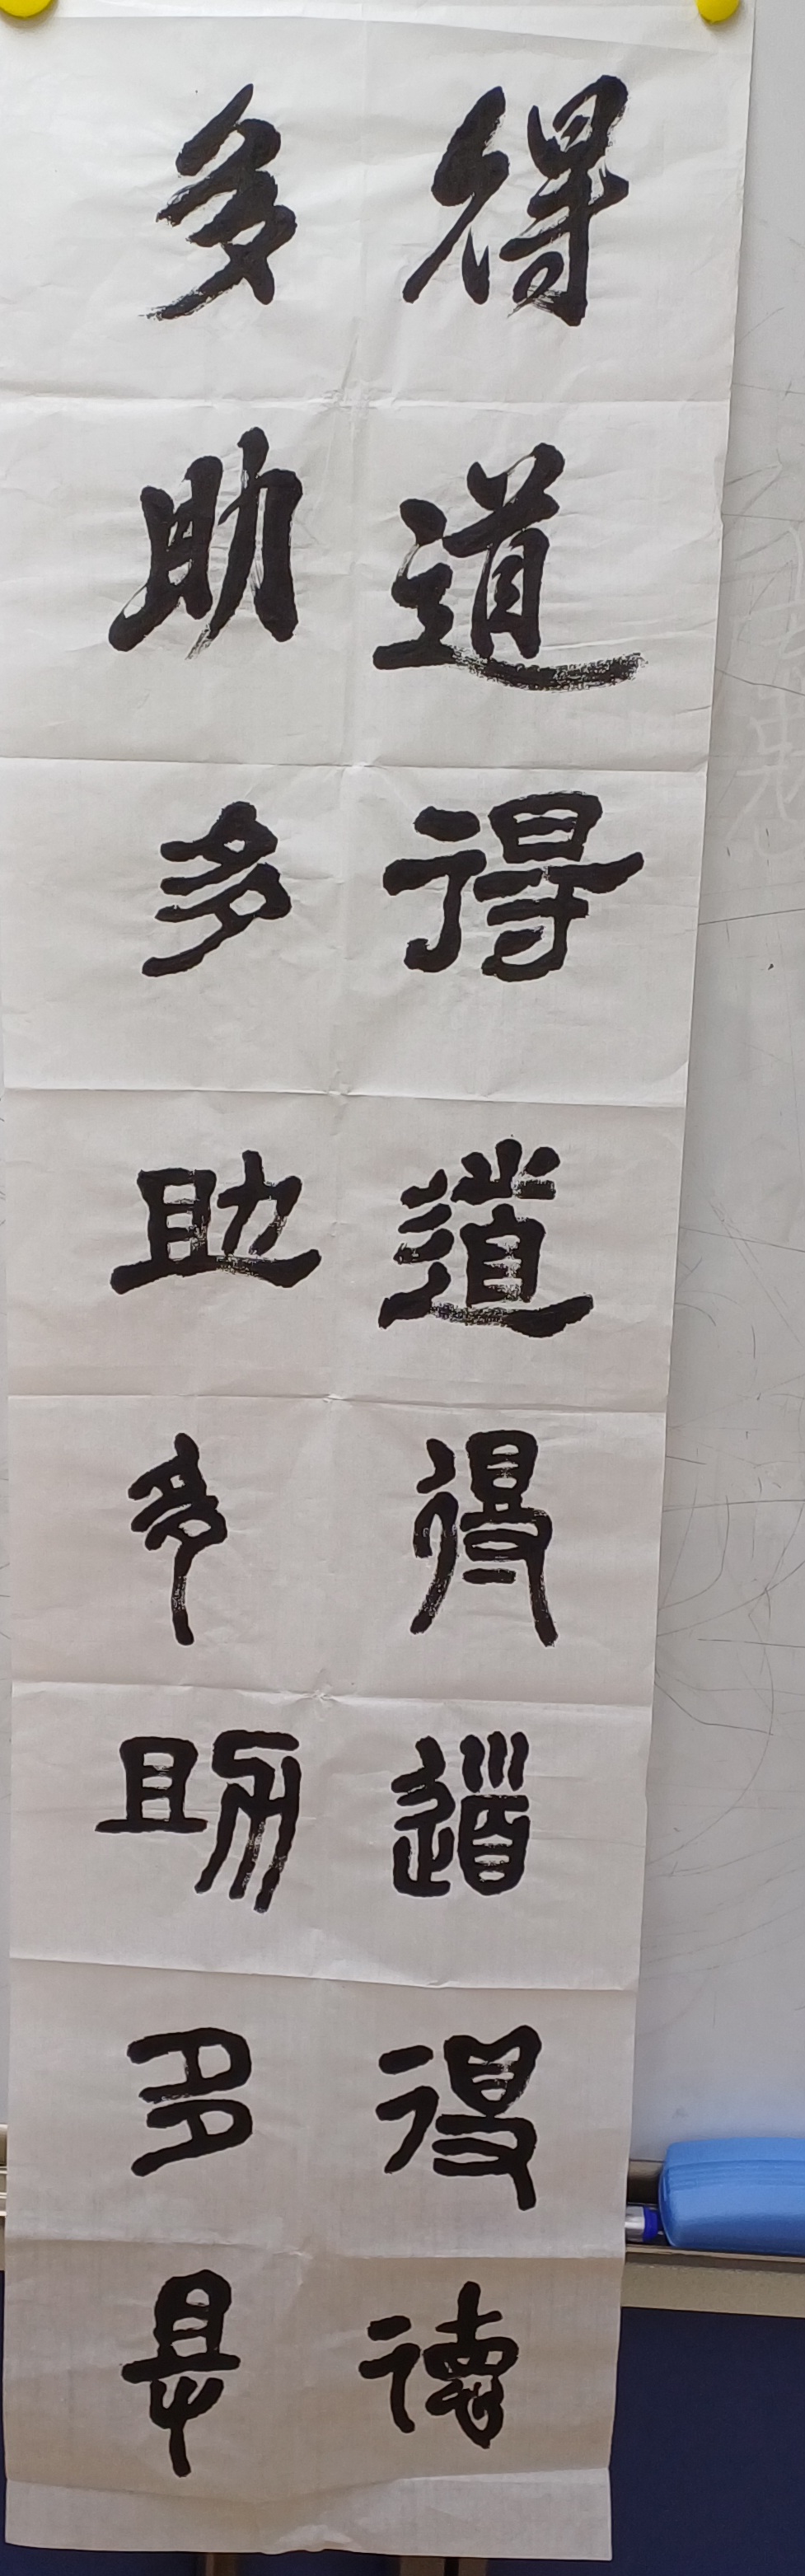 得道得道得道得德
多助多助多助多助